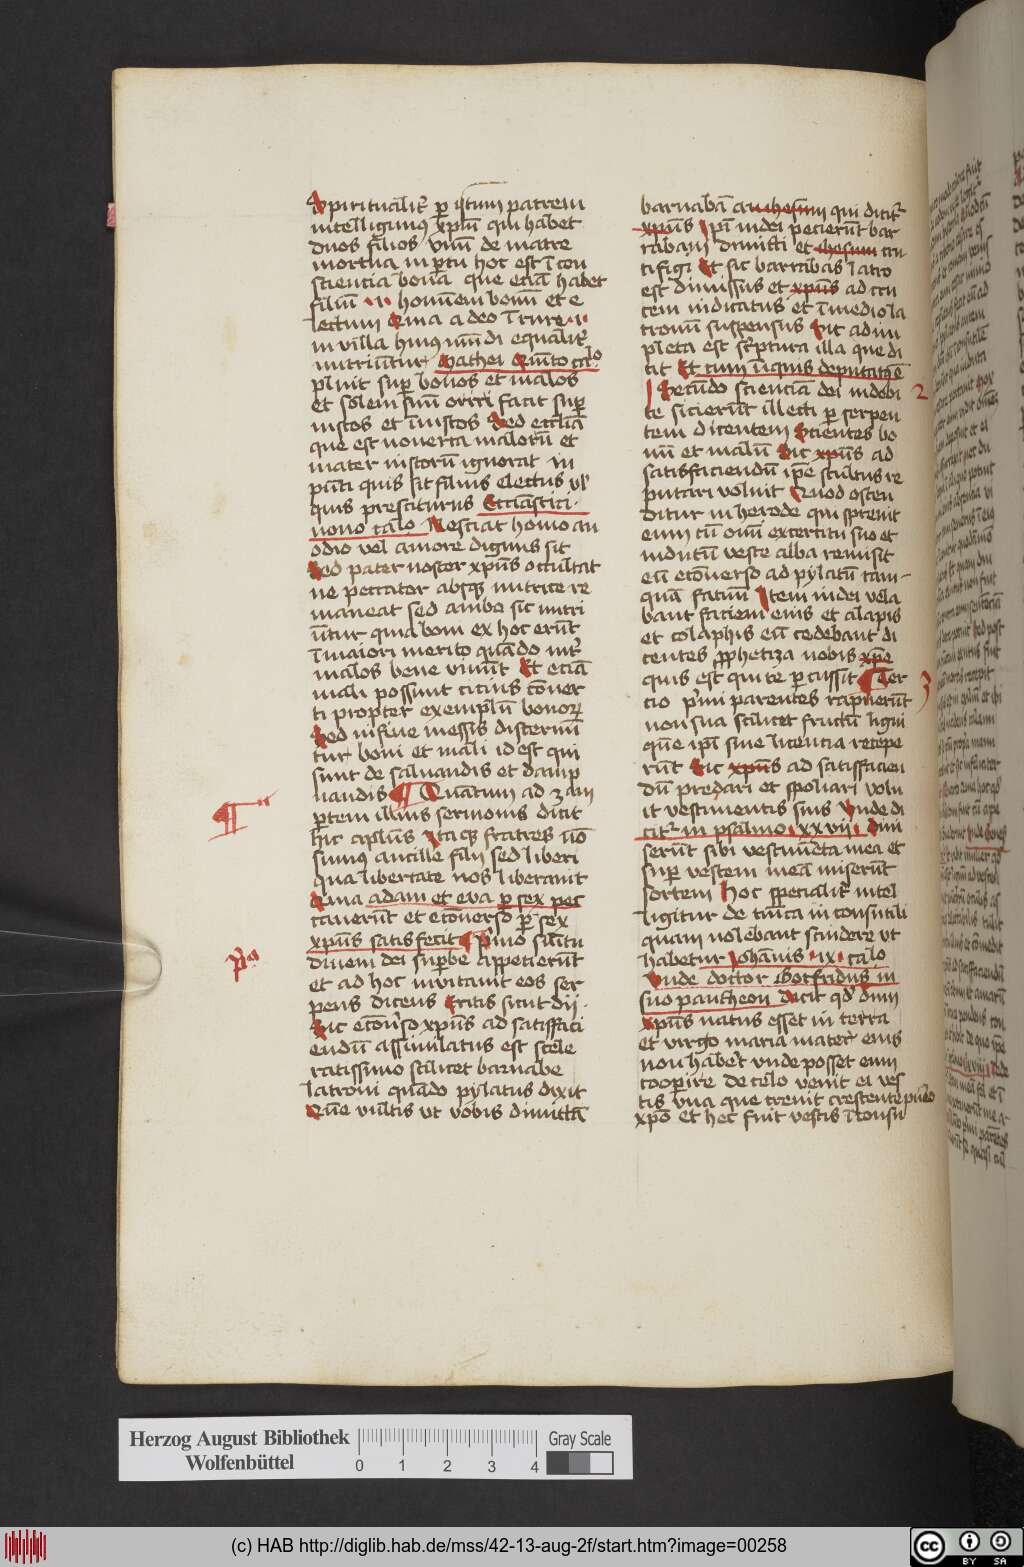 Spiritualit᷑ ꝑ istum patrem
intelligimꝰ xpm̄ qui habet
duos filios vnū de matre
mortua in partu hoc est ī con
scientia bona que eciā habet
filiū .i. hominem bonū et e
lectum Quia adeo ī rure .i.
in villa huiꝰ mūdi equalit᷑
nutriūtur Mathei Quinto calo
pluit suꝑ bonos et malos
et solem suū oriri facit suꝑ
iustos et iniustos Sed ecclia
que est nouerca malorū et
mater iustorū ignorat in
pn̄ti quis sit filius electus vl
quis prescitus Ecclīastici
nono calo Nesciat homo an
odio vel amore dignus sit
Sed pater noster xpūs occultat
ne peccator absqꝫ nutrice re
maneat sed ambo sic nutri
ūtur quia boni ex hoc erūt
ī maiori merito quādo int᷑
malos bene viuūt Et eciā
mali possunt cicius cōuer
ti propter exemplū bonoꝝ
Sed in fine messis discernū
tur boni et mali id est qui
sunt de saluandis et damp
nandis ¶ Quātum ad 2am
ꝑtem illius sermonis dicit
hic aplūs Itaqꝫ fratres nō
sumꝰ ancille filii sed liberi
qua libertate nos liberauit
Quia adam et eua ꝑ sex pec
cauerūt et ecōuerso ꝑ sex
xpūs satisfecit ¶ Primo silitu
dinem dei suꝑbe appecierūt
et ad hoc inuitauit eos ser
pens dicens Eritis sicut dii
Sic ecōuerso xpūs ad satisfaci
endū assimulatus est scele
ratissimo scilicet barnabe
latroni quādo pylatus dixit
Quē vultis vt vobis dimittā
¶
pa
barnabā an ihesum qui dicit᷑
xpūs Ipī iudei pecierūt bar
rabam dimitti et ihesum cru
cifigi Et sic barrabas latro
est dimissus et xpūs ad cru
cem iudicatus et ī medio la
tronū suspensus Sic adim
pleta est scriptura illa que di
cit Et cum iniquis deputatꝰ ē
Secūdo scienciā dei indebi
te sicierūt illecti ꝑ serpen
tem dicentem Scientes bo
nū et malū Sic xpūs ad
satisfaciendū ip̄e stultus re
putari voluit Quod osten
ditur in herode qui spreuit
eum cū om̄i exercitu suo et
indutū veste alba remisit
eū ecōuerso ad pylatū tam
quā fatuū Item iudei vela
bant faciem eius et alapis
et colaphis eū cedebant di
centes prophetiza nobis xpe
quis est qui te ꝑcussit ¶ Ter
cio primi parentes rapuerūt
non sua scilicet fructū ligni
quē ipī sine licencia recepe
rūt Sic xpūs ad satisfacien
dū predari et spoliari volu
it vestimentis suis Vnde di
cit᷑ in psalmo .xxvii. Diui
serūt sibi vestimēta mea et
suꝑ vestem meā miserūt
sortem hoc specialit᷑ intel
ligitur de tunica inconsutili
quam nolebant scindere vt
habetur Iohānis .ix. calo
Vnde doctor Gotfridus in
suo pantheon dicit qd dum
xpūs natus esset in terra
et virgo maria mater eius
non habet vnde posset eum
cooperire de celo venit ei ves
tis vna que creuit crescente puero
xpo Et hec fuit vestis ī consu
2
3
Herzog August Bibliothek
Wolfenbüttel
0 1 2 3 4
Gray Scale
(c) HAB http://diglib.hab.de/mss/42-13-aug-2f/start.htm?image=00258
cc BY SA